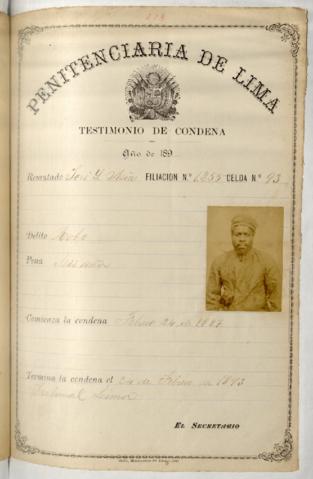 PENITENCIARIA DE LIMA
TESTIMONIO DE CONDENA
Año de 189
Rematado José FILIACION N.º 1255 CELDA N.º 93
Delito Robo
Pena Seis años
Comienza la condena Febro 24 de 1887
Termina la condena el 24 de Febro de 1893
Tribunal Lima
EL SECRETARIO